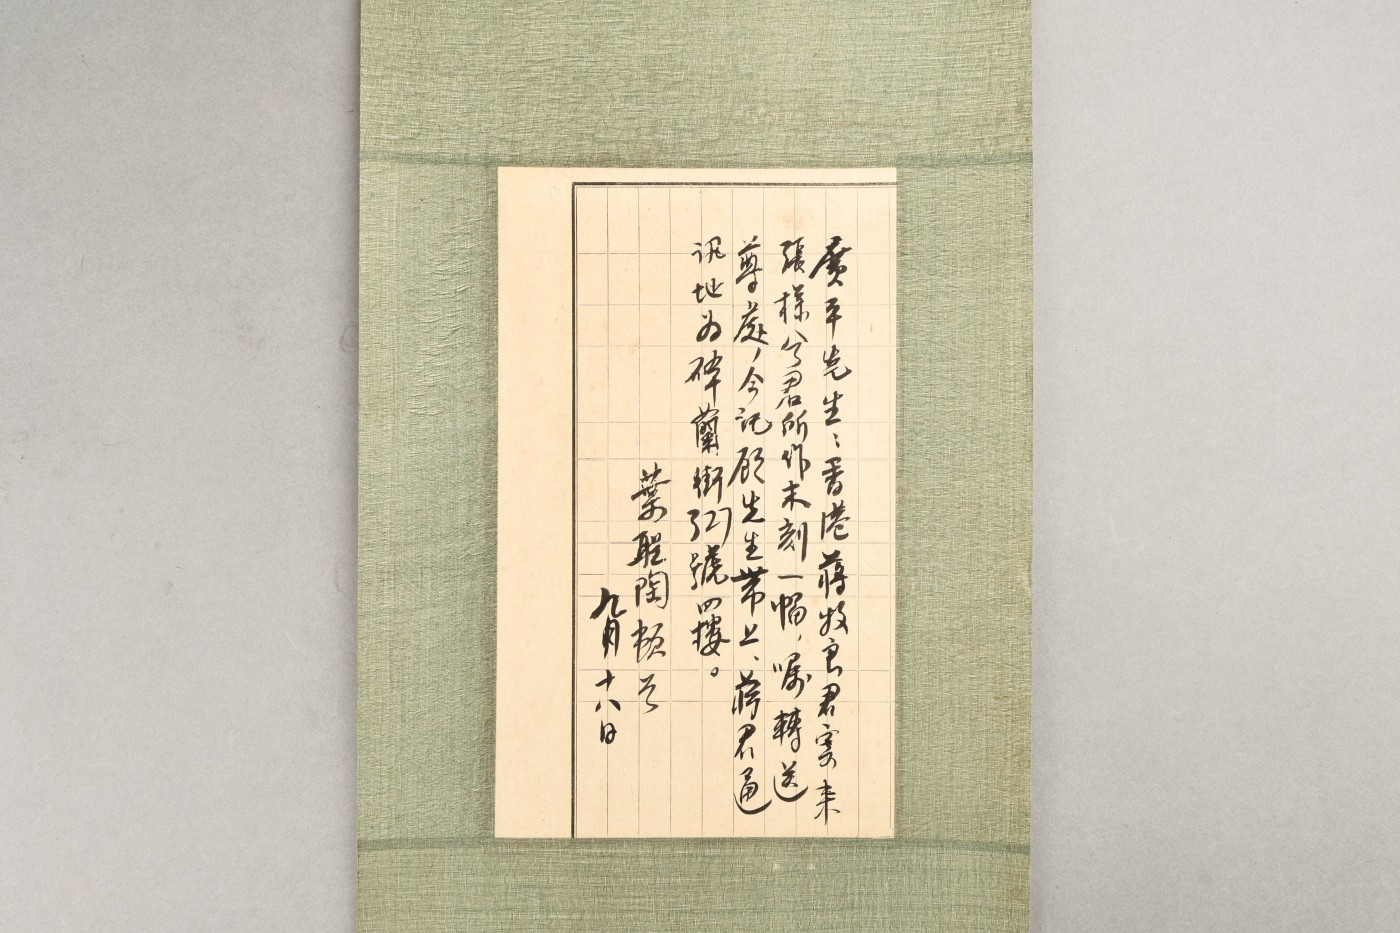 廣平先生：香港蔣牧良君寄来
張樣兮君所作木刻一幅，嘱轉送
尊處，今託顾先生帶上、蔣君通
訊地为砵蘭街327號四樓。
葉聖陶頓首
九月十八日